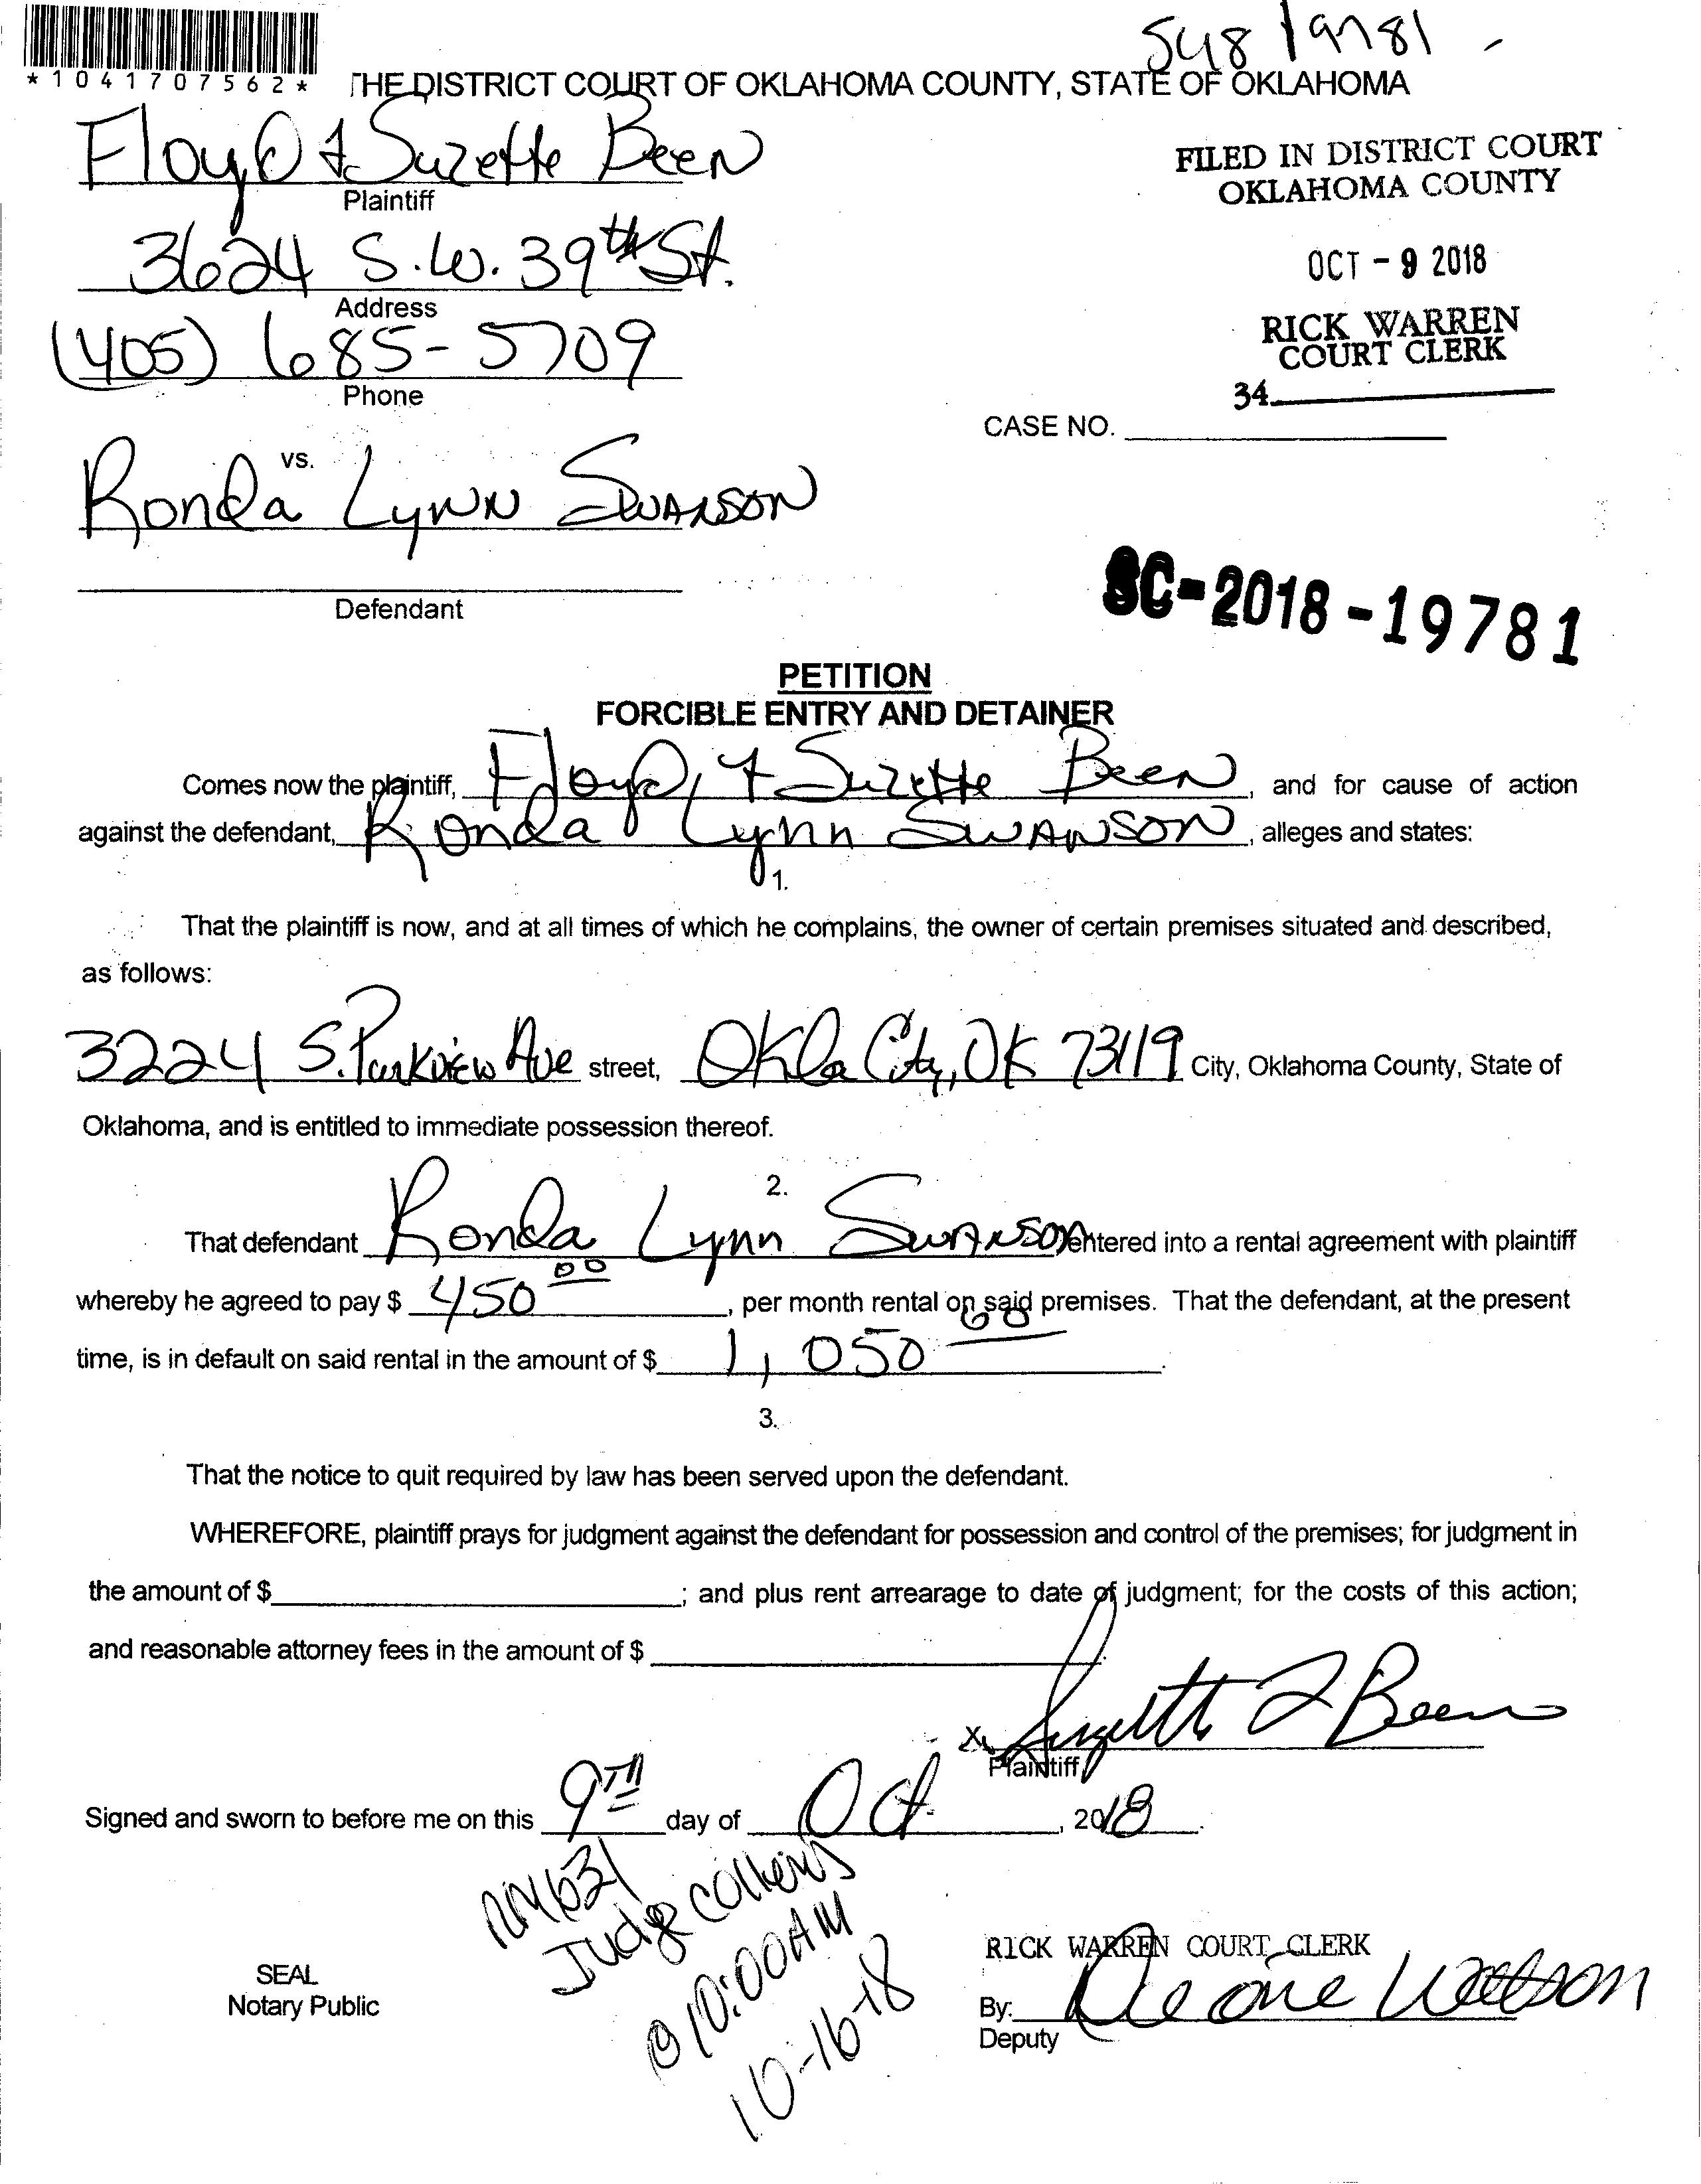 SC18 19781 -
*1041707562*
THE DISTRICT COURT OF OKLAHOMA COUNTY, STATE OF OKLAHOMA
Floyd & Suzette Been
Plaintiff
3624 S.W. 39th St.
Address
(405) 685-5709
Phone
FILED IN DISTRICT COURT
OKLAHOMA COUNTY
OCT - 9 2018
RICK WARREN
COURT CLERK
34
CASE NO.
vs.
Ronda Lynn Swanson
Defendant
SC-2018-19781
PETITION
FORCIBLE ENTRY AND DETAINER
Comes now the plaintiff, Floyd & Suzette Been, and for cause of action
against the defendant, Ronda Lynn Swanson, alleges and states:
1.
That the plaintiff is now, and at all times of which he complains, the owner of certain premises situated and described,
as follows:
3224 S. Parkview Ave street, Okla City, OK 73119 City, Oklahoma County, State of
Oklahoma, and is entitled to immediate possession thereof.
2.
That defendant Ronda Lynn Swanson entered into a rental agreement with plaintiff
whereby he agreed to pay $ 450 00, per month rental on said premises. That the defendant, at the present
time, is in default on said rental in the amount of $ 1,050 00.
3.
That the notice to quit required by law has been served upon the defendant.
WHEREFORE, plaintiff prays for judgment against the defendant for possession and control of the premises; for judgment in
the amount of $ ; and plus rent arrearage to date of judgment; for the costs of this action;
and reasonable attorney fees in the amount of $ .
X Suzette J Been
Plaintiff
Signed and sworn to before me on this 9TH day of Oct, 2018.
RM 631
Judge Collins
@ 10:00AM
10-16-18
SEAL
Notary Public
RICK WARREN COURT CLERK
By: Watson
Deputy